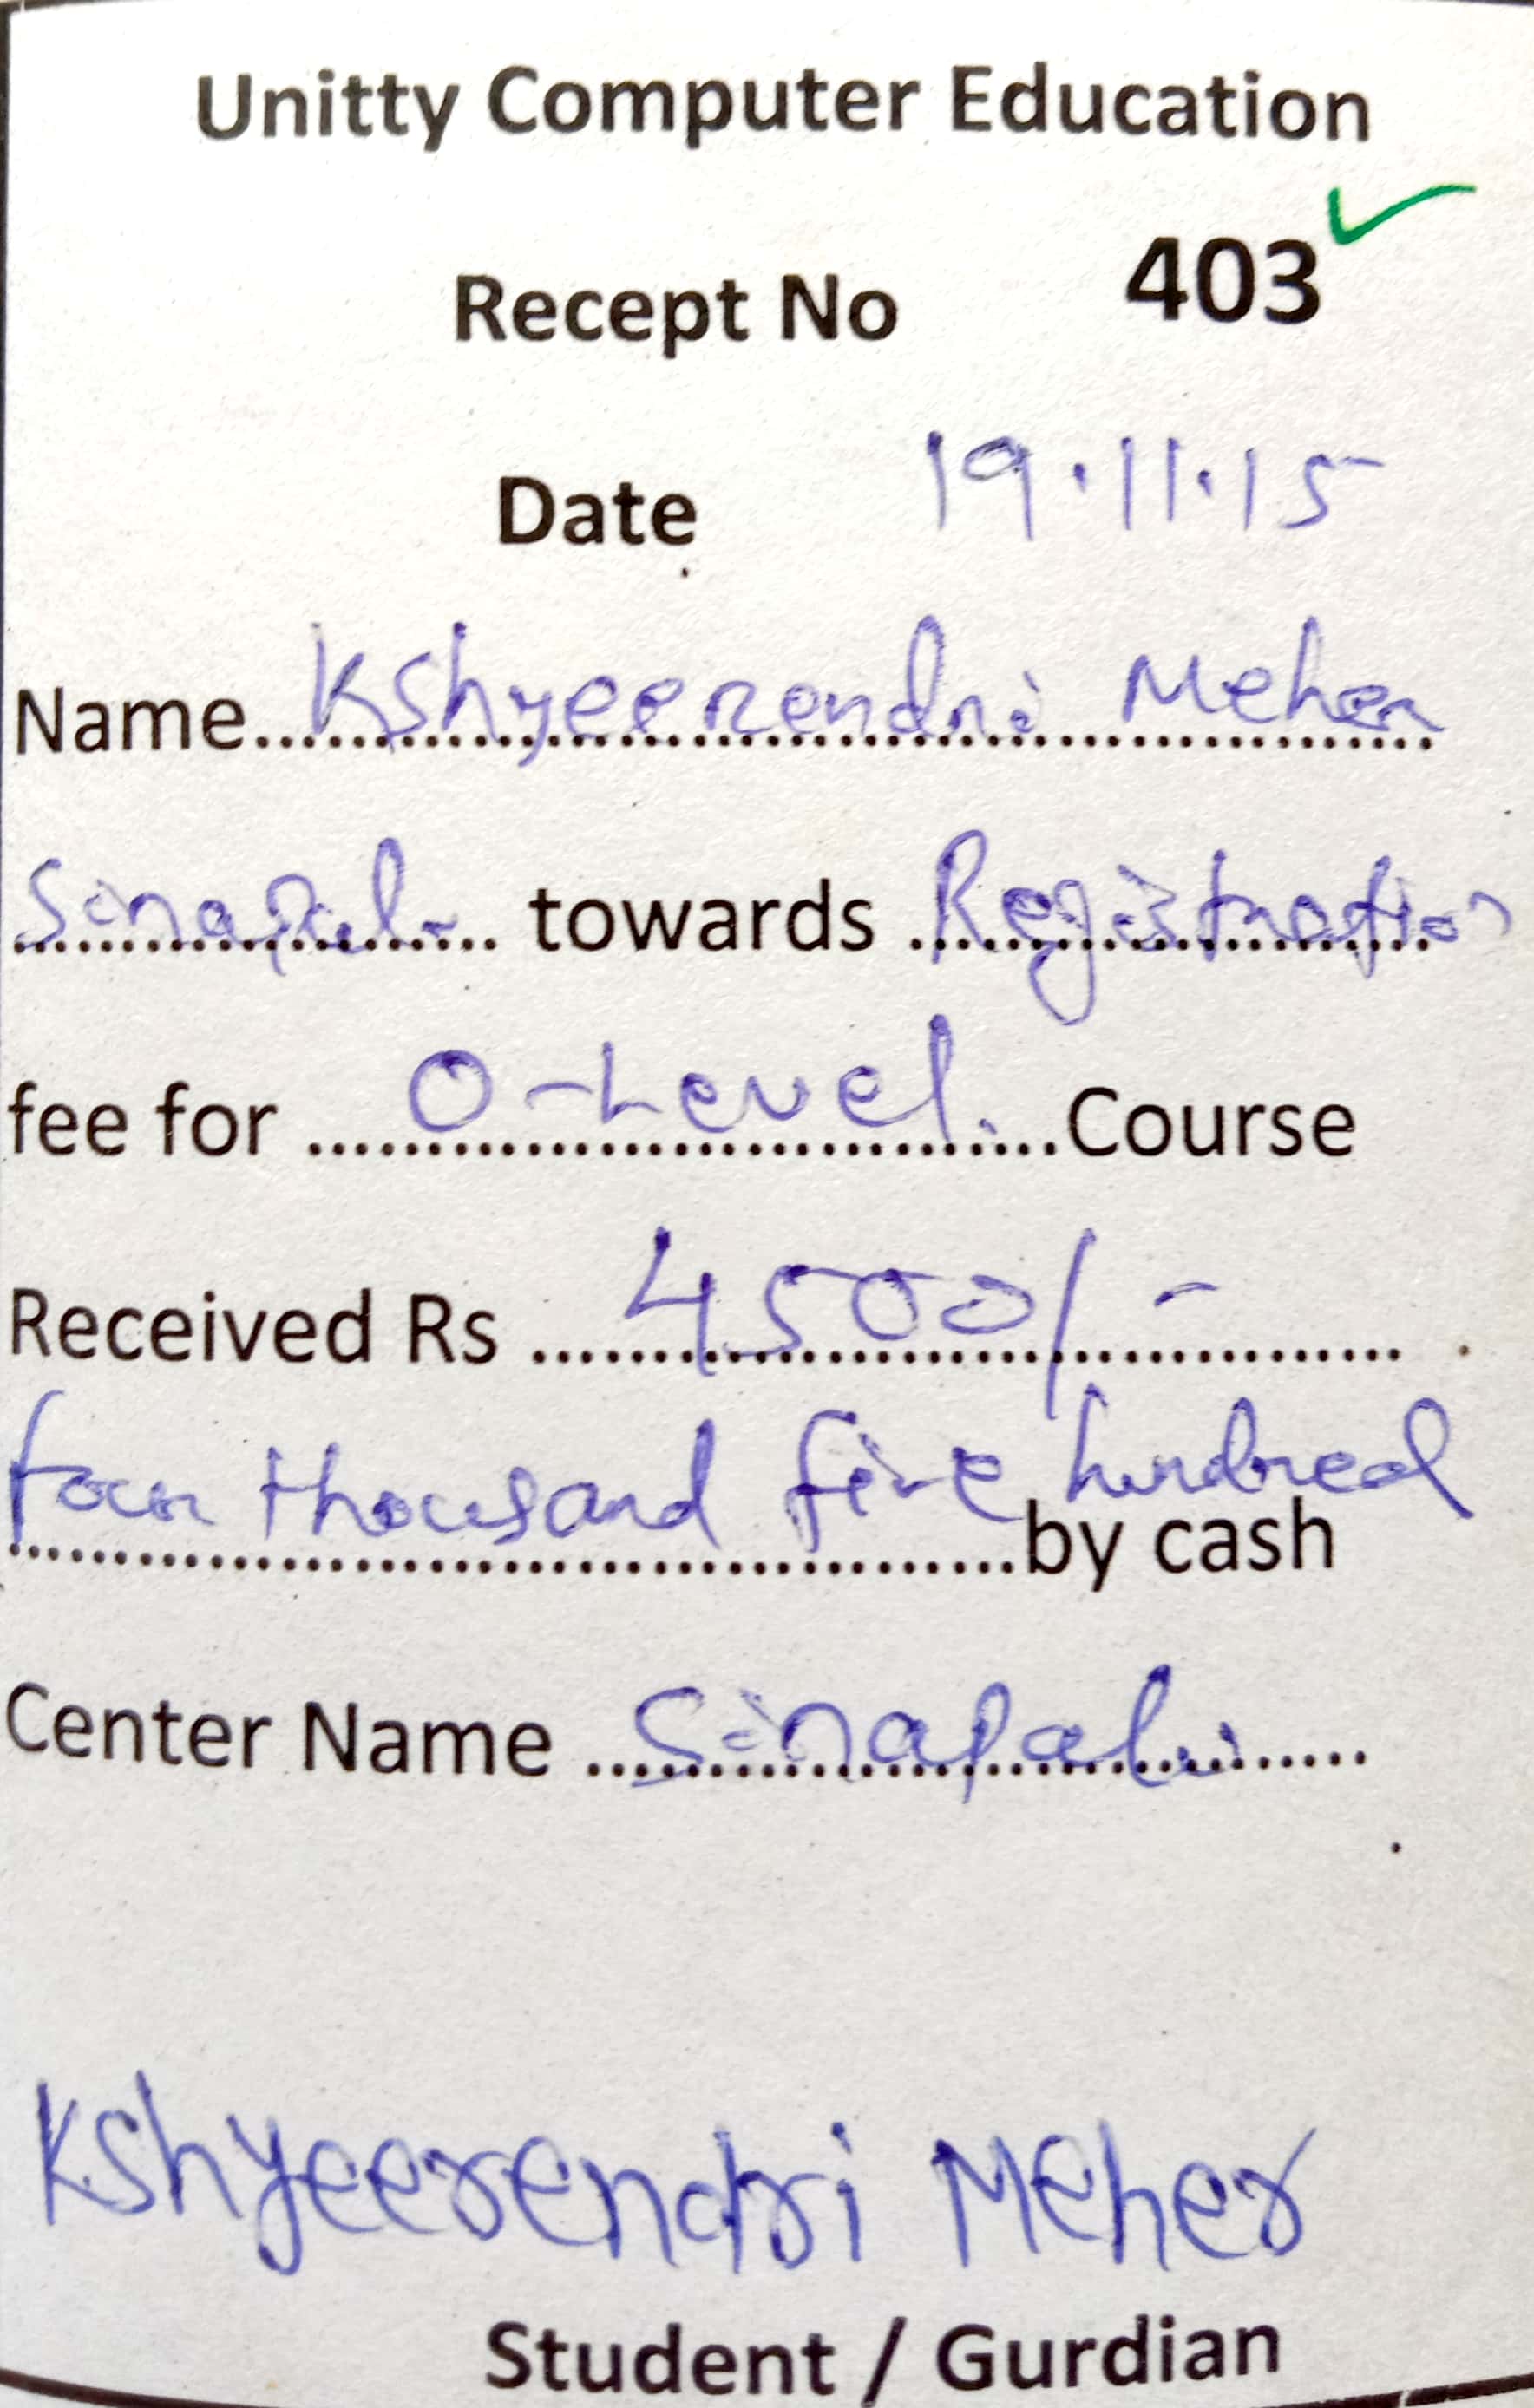 Unitty Computer Education
Recept No 403
Date 19.11.15
Name Kshyeerendri Meher
Sinapali towards Registration
fee for O-Level. Course
Received Rs 4500/-
four thousand five hundred
by cash
Center Name Sinapali
Kshyeerendri Meher
Student / Gurdian